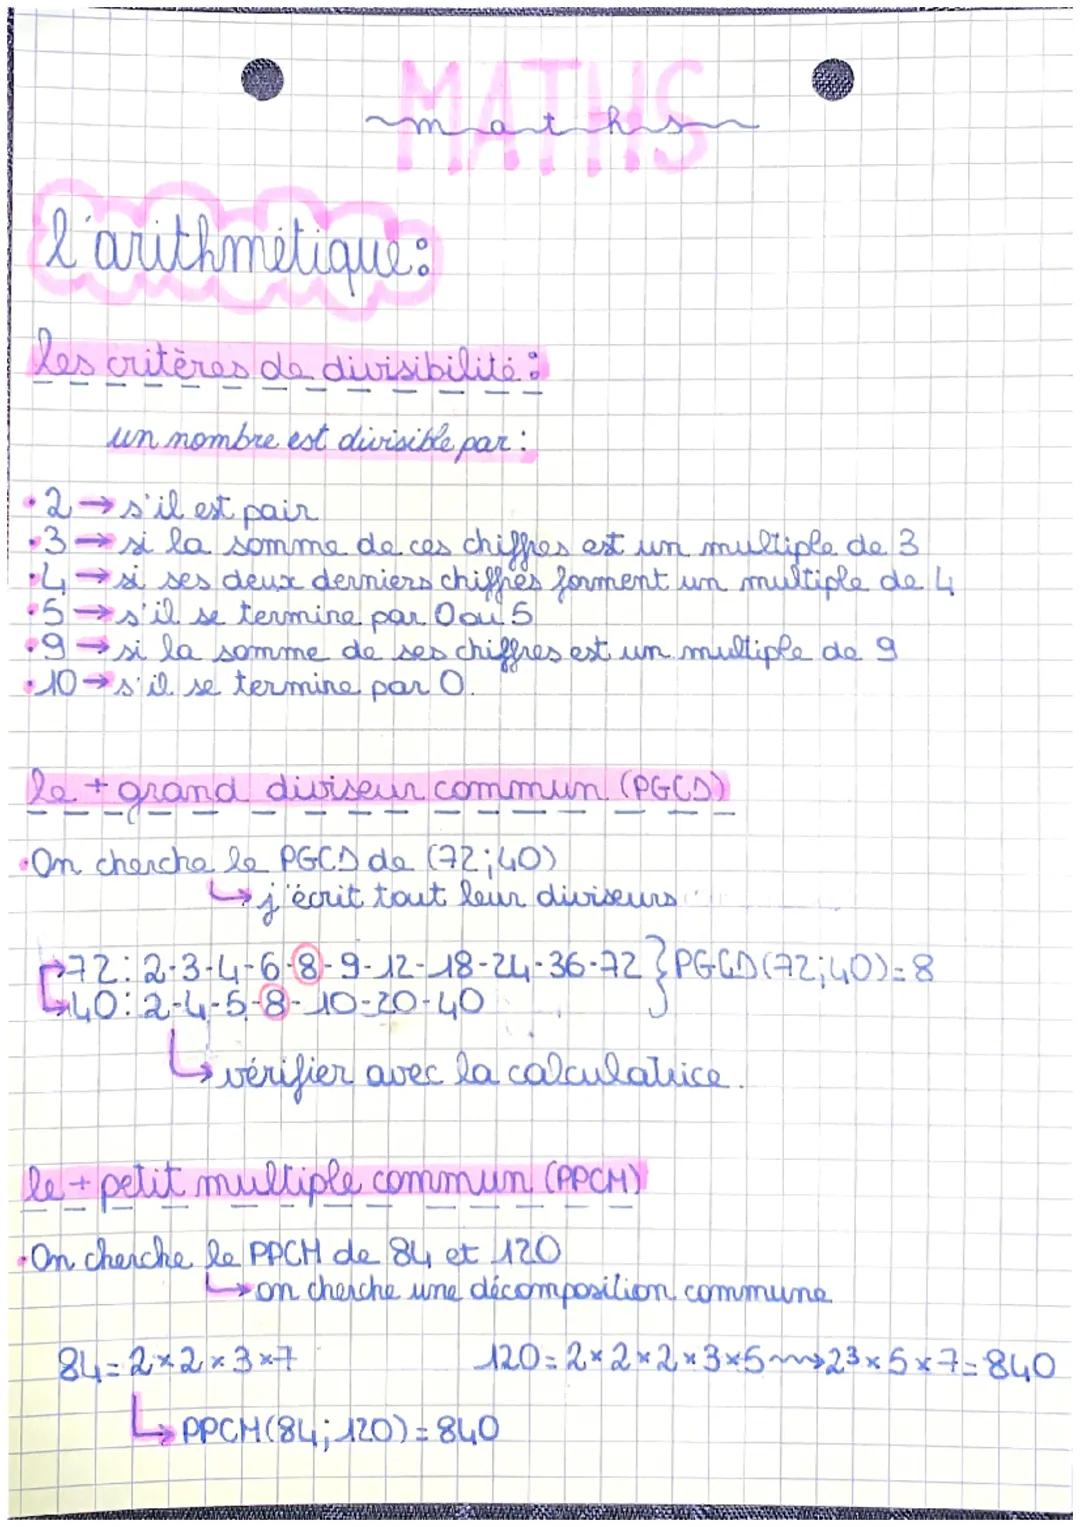 MATHS
maths
l'arithmétique:
les critères de divisibilité:
un nombre est divisible par:
•2→s'il est pair
•3→si la somme de ces chiffres est un multiple de 3
•4→si ses deux derniers chiffres forment un multiple de 4
•5→s'il se termine par 0 ou 5
•9→si la somme de ses chiffres est un multiple de 9
•10→s'il se termine par 0.
le + grand diviseur commun (PGCD)
•On cherche le PGCD de (72;40)
↳j'écrit tout leur diviseurs
72: 2-3-4-6-8-9-12-18-24-36-72 } PGCD(72;40)=8
40: 2-4-5-8-10-20-40
↳vérifier avec la calculatrice.
le + petit multiple commun (PPCM)
•On cherche le PPCM de 84 et 120
↳on cherche une décomposition commune
84=2×2×3×7 120=2×2×2×3×5⇝2³×5×7=840
↳PPCM(84;120)=840